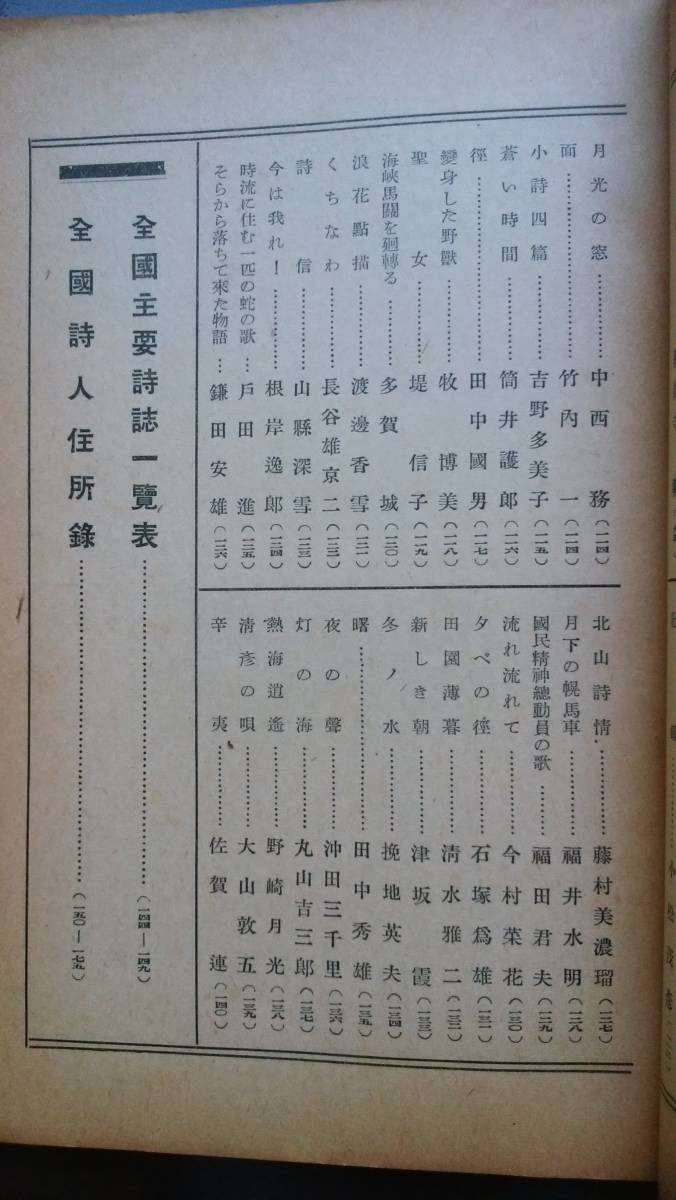 月光の窓…………中西務(一二四)
面…………竹內一(一二四)
小詩四篇…………吉野多美子(一二五)
蒼い時間…………筒井護郎(一二六)
徑…………田中國男(一二七)
變身した野獸…………牧博美(一二八)
聖女…………堤信子(一二九)
海峽馬關を廻轉る…………多賀城(一三〇)
浪花點描…………渡邊香雪(一三一)
くちなわ…………長谷雄京二(一三二)
詩信…………山縣深雪(一三三)
今は我れ!…………根岸逸郎(一三四)
時流に住む一匹の蛇の歌…戶田進(一三五)
そらから落ちて來た物語…鎌田安雄(一三六)
北山詩情…………藤村美濃瑠(一二七)
月下の幌馬車…………福井水明(一二八)
國民精神總動員の歌…………福田君夫(一二九)
流れ流れて…………今村菜花(一三〇)
夕べの徑…………石塚爲雄(一三一)
田園薄暮…………淸水雅二(一三二)
新しき朝…………津坂霞(一三三)
冬ノ水…………挽地英夫(一三四)
曙…………田中秀雄(一三五)
夜の聲…………沖田三千里(一三六)
灯の海…………丸山吉三郎(一三七)
熱海逍遙…………野崎月光(一三八)
淸彥の唄…………大山敦五(一三九)
辛夷…………佐賀連(一四〇)
全國主要詩誌一覽表…………(一四四—一四九)
全國詩人住所錄…………(一五〇—一七五)